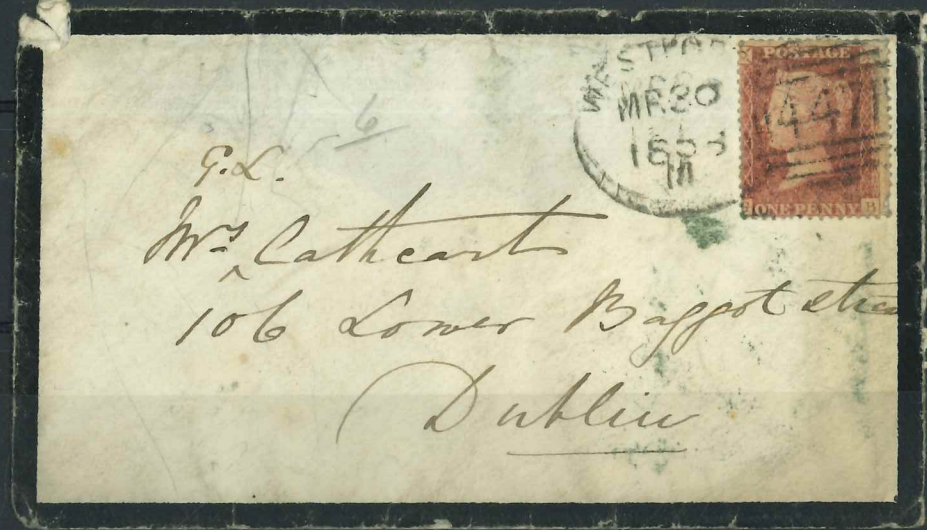 6
WESTPOR
MR 30
1858
POSTAGE
447
ONE PENNY
B
G.L.
Mrs Cathcart
106 Lower Baggot Stree
Dublin